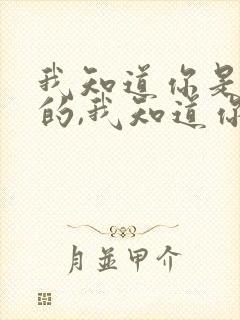 我知道你是
的,我知道你
月並甲介